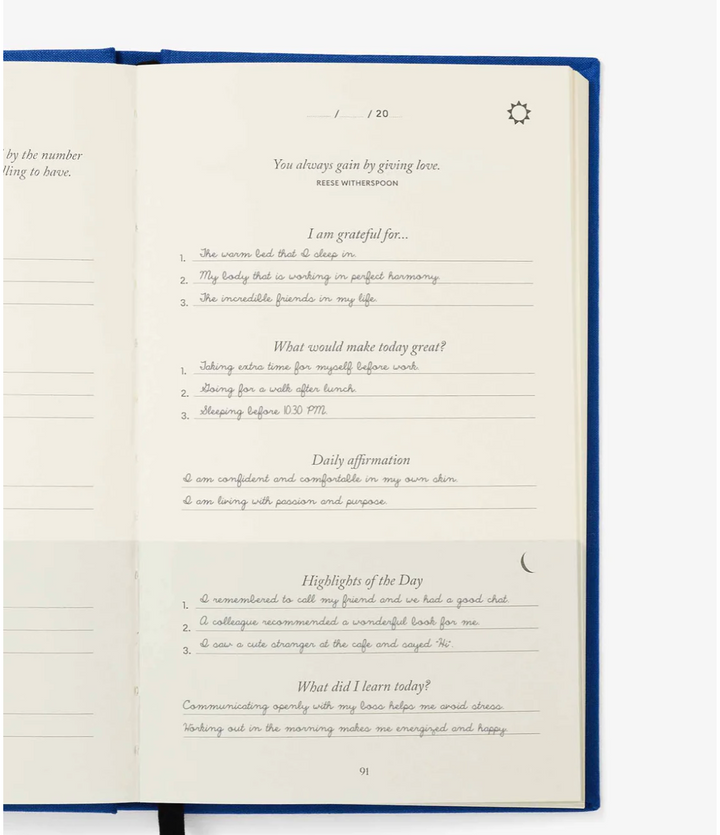 by the number
lling to have.
/ / 20
You always gain by giving love.
REESE WITHERSPOON
I am grateful for...
1. The warm bed that I sleep in.
2. My body that is working in perfect harmony.
3. The incredible friends in my life.
What would make today great?
1. Taking extra time for myself before work.
2. Going for a walk after lunch.
3. Sleeping before 10.30 PM.
Daily affirmation
I am confident and comfortable in my own skin.
I am living with passion and purpose.
Highlights of the Day
1. I remembered to call my friend and we had a good chat.
2. A colleague recommended a wonderful book for me.
3. I saw a cute stranger at the cafe and sayed "Hi".
What did I learn today?
Communicating openly with my boss helps me avoid stress.
Working out in the morning makes me energized and happy.
91